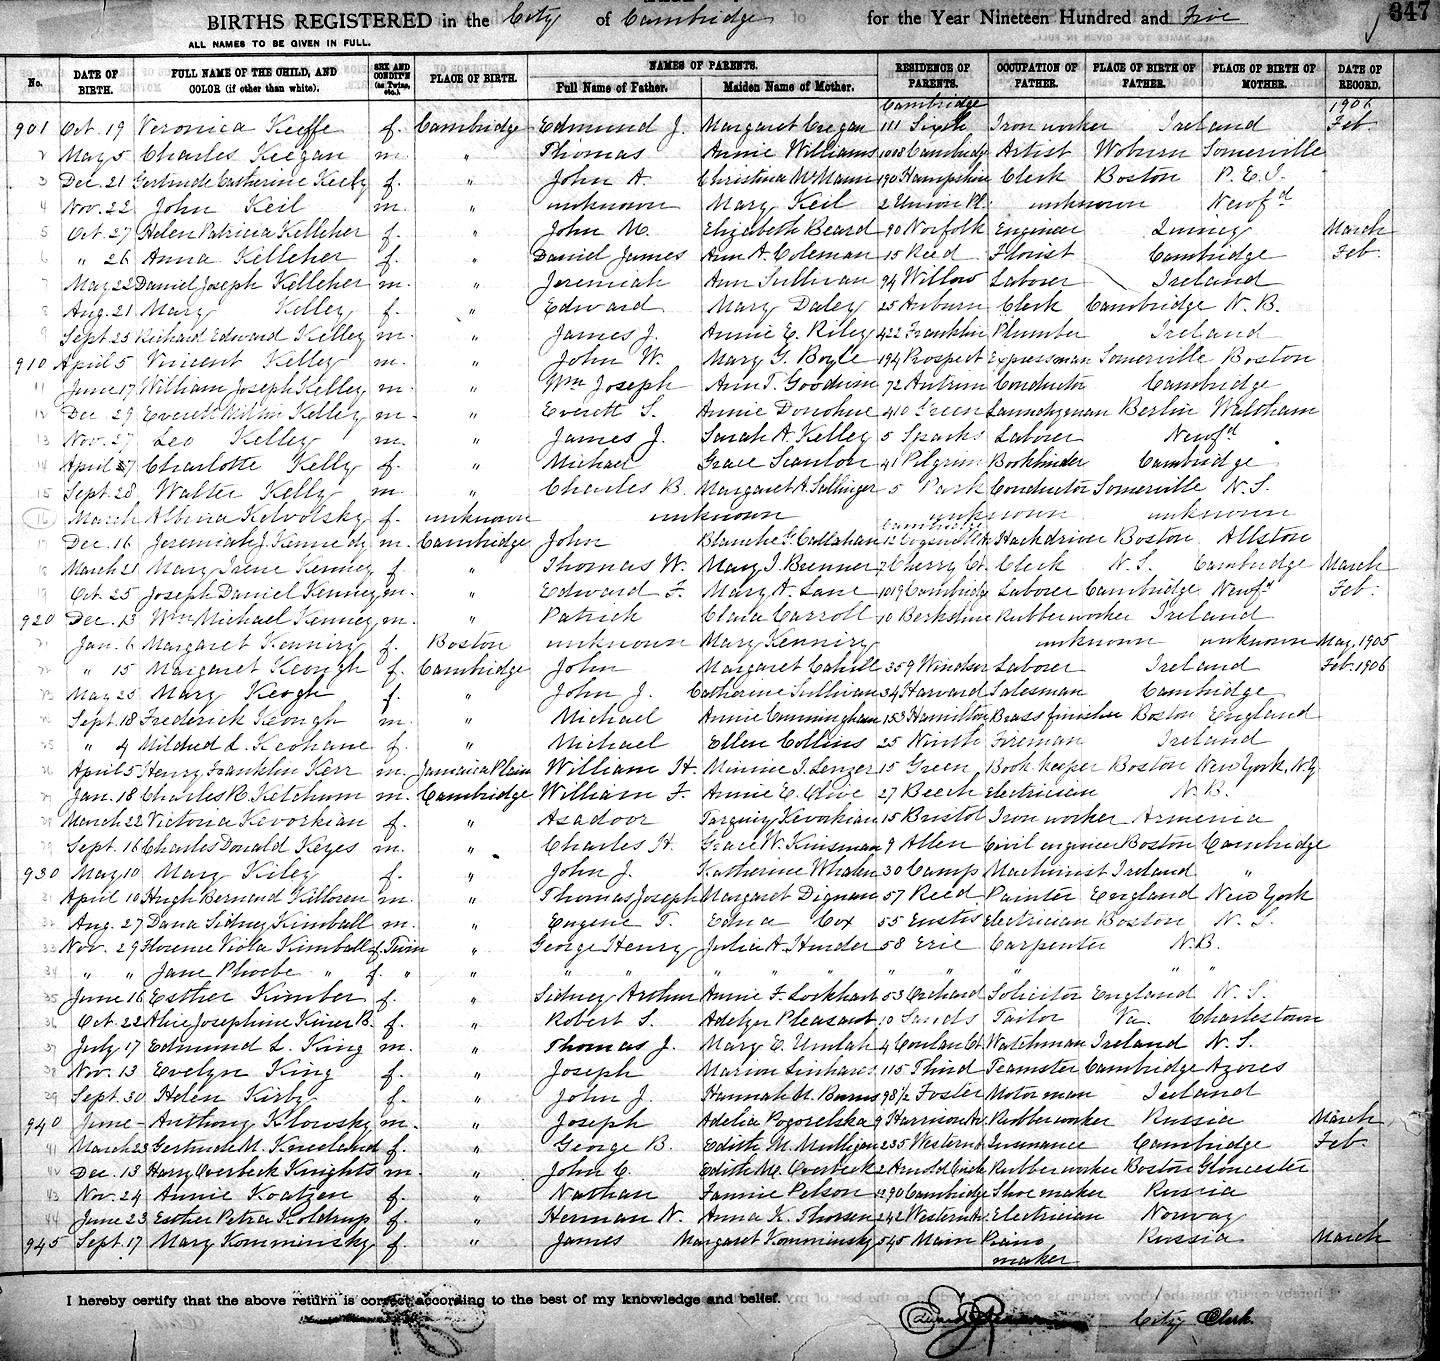 347
BIRTHS REGISTERED in the City of Cambridge for the Year Nineteen Hundred and Five
ALL NAMES TO BE GIVEN IN FULL.
No. DATE OF BIRTH. FULL NAME OF THE CHILD, AND COLOR (if other than white). SEX AND CONDIT'N (as Twins, etc.) PLACE OF BIRTH. NAMES OF PARENTS. Full Name of Father. Maiden Name of Mother. RESIDENCE OF PARENTS. OCCUPATION OF FATHER. PLACE OF BIRTH OF FATHER. PLACE OF BIRTH OF MOTHER. DATE OF RECORD.
Cambridge 1906
901 Oct. 19 Veronica Keeffe f. Cambridge Edmund J. Margaret Cregan 111 Sixth Iron worker Ireland Feb.
2 May 5 Charles Keegan m. " Thomas Annie Williams 1008 Cambridge Artist Woburn Somerville
3 Dec. 21 Gertrude Catherine Keely f. " John A. Christina McMann 190 Hampshire Clerk Boston P.E.I.
4 Nov. 22 John Keil m. " unknown Mary Keil 2 Union Pl. unknown Newf'd
5 Oct. 27 Helen Patricia Kelleher f. " John M. Elizabeth Beard 90 Norfolk Engineer Quincy March
6 " 26 Anna Kelleher f. " Daniel James Ann A. Coleman 15 Reed Florist Cambridge Feb.
7 May 22 Daniel Joseph Kelleher m. " Jeremiah Ann Sullivan 94 Willow Laborer Ireland
8 Aug. 21 Mary Kelley f. " Edward Mary Daley 25 Auburn Clerk Cambridge N.B.
9 Sept. 25 Richard Edward Kelley m. " James J. Annie E. Riley 422 Franklin Plumber Ireland
910 April 5 Vincent Kelley m. " John W. Mary G. Boyle 194 Prospect Expressman Somerville Boston
11 June 17 William Joseph Kelley m. " Wm Joseph Ann T. Goodwin 72 Antrim Conductor Cambridge
12 Dec. 29 Everett Kelley m. " Everett S. Annie Donohue 410 Green Laundryman Berlin Waltham
13 Nov. 27 Leo Kelley m. " James J. Sarah A. Kelley 5 Sparks Laborer Newf'd
14 April 27 Charlotte Kelly f. " Michael Grace Scanlon 41 Pilgrim Bookbinder Cambridge
15 Sept. 28 Walter Kelly m. " Charles B. Margaret A. Sallinger 5 Park Conductor Somerville N.S.
16 March Albina Kelvolsky f. unknown unknown unknown unknown
17 Dec. 16 Jeremiah J. Kennedy m. Cambridge John Blanche G. Callahan Cambridge 12 Hackdriver Boston Allston
18 March 21 Mary Irene Kenney f. " Thomas W. Mary J. Brenner 7 Cherry Ct. Clerk N.S. Cambridge March
19 Oct. 25 Joseph Daniel Kenney m. " Edward F. Mary A. Lane 1019 Cambridge Laborer Cambridge Newf'd Feb.
920 Dec. 13 Wm Michael Kenney m. " Patrick Clara Carroll 10 Berkshire Rubber worker Ireland
21 Jan. 6 Margaret Kenniry f. Boston unknown Mary Kenniry unknown unknown May, 1905
22 " 15 Margaret Keough f. Cambridge John Margaret Cahill 359 Windsor Laborer Ireland Feb. 1906
23 May 25 Mary Keogh f. " John J. Catherine Sullivan 34 Harvard Salesman Cambridge
24 Sept. 18 Frederick Keough m. " Michael Annie Cunningham 153 Hamilton Brass finisher Boston England
25 " 4 Mildred L. Keohane f. " Michael Ellen Collins 25 Ninth Fireman Ireland
26 April 5 Henry Franklin Kerr m. Jamaica Plain William H. Minnie I. Lenzer 15 Green Book keeper Boston New York, N.Y.
27 Jan. 18 Charles B. Ketchum m. Cambridge William F. Annie E. Olive 27 Beech Electrician N.B.
28 March 22 Victoria Kevorkian f. " Asadoor Kevorkian 15 Bristol Iron worker Armenia
29 Sept. 16 Charles Donald Keyes m. " Charles H. Grace W. Kinsman 9 Allen Civil engineer Boston Cambridge
930 May 10 Mary Kiley f. " John J. Katherine Whalen 30 Camp Machinist Ireland "
31 April 10 Hugh Bernard Killoren m. " Thomas Joseph Margaret Dignan 57 Reed Painter England New York
32 Aug. 27 Dana Sidney Kimball m. " Eugene T. Edna Cox 55 Eustis Electrician Boston N.S.
33 Nov. 29 Florence Viola Kimball f. Twin " George Henry Julia A. Hinder 58 Erie Carpenter N.B.
34 " " Jane Phoebe " f. " " " " " " " " " "
35 June 16 Esther Kimber f. " Sidney Arthur Annie F. Lockhart 53 Orchard Solicitor England N.S.
36 Oct. 22 Alice Josephine Kiner B. f. " Robert S. Adelzer Pleasant 10 Sands Tailor Va. Charlestown
37 July 17 Edmund L. King m. " Thomas J. Mary E. Umlah 4 Conlan Ct. Watchman Ireland N.S.
38 Nov. 13 Evelyn King f. " Joseph Marion Linhares 115 Third Teamster Cambridge Azores
39 Sept. 30 Helen Kirby f. " John J. Hannah M. Burns 98½ Foster Motorman Ireland
940 June - Anthony Klowsky m. " Joseph Adelia Pogorelska 9 Harrison Av. Rubber worker Russia March
41 March 23 Gertrude M. Kneeland f. " George B. Edith M. Mulligan 235 Western Av. Insurance Cambridge Feb.
42 Dec. 13 Harry Overbeck Knights m. " John C. Edith M. Overbeck 2 Arnold Circle Rubber worker Boston Gloucester
43 Nov. 24 Annie Koatzen f. " Nathan Fannie Pelson 1290 Cambridge Shoe maker Russia
44 June 23 Esther Petra Koldrup f. " Herman N. Anna K. Thorsen 242 Western Av. Electrician Norway
945 Sept. 17 Mary Komminsky f. " James Margaret Komminsky 545 Main Piano maker Russia March
I hereby certify that the above return is correct according to the best of my knowledge and belief.
City Clerk.